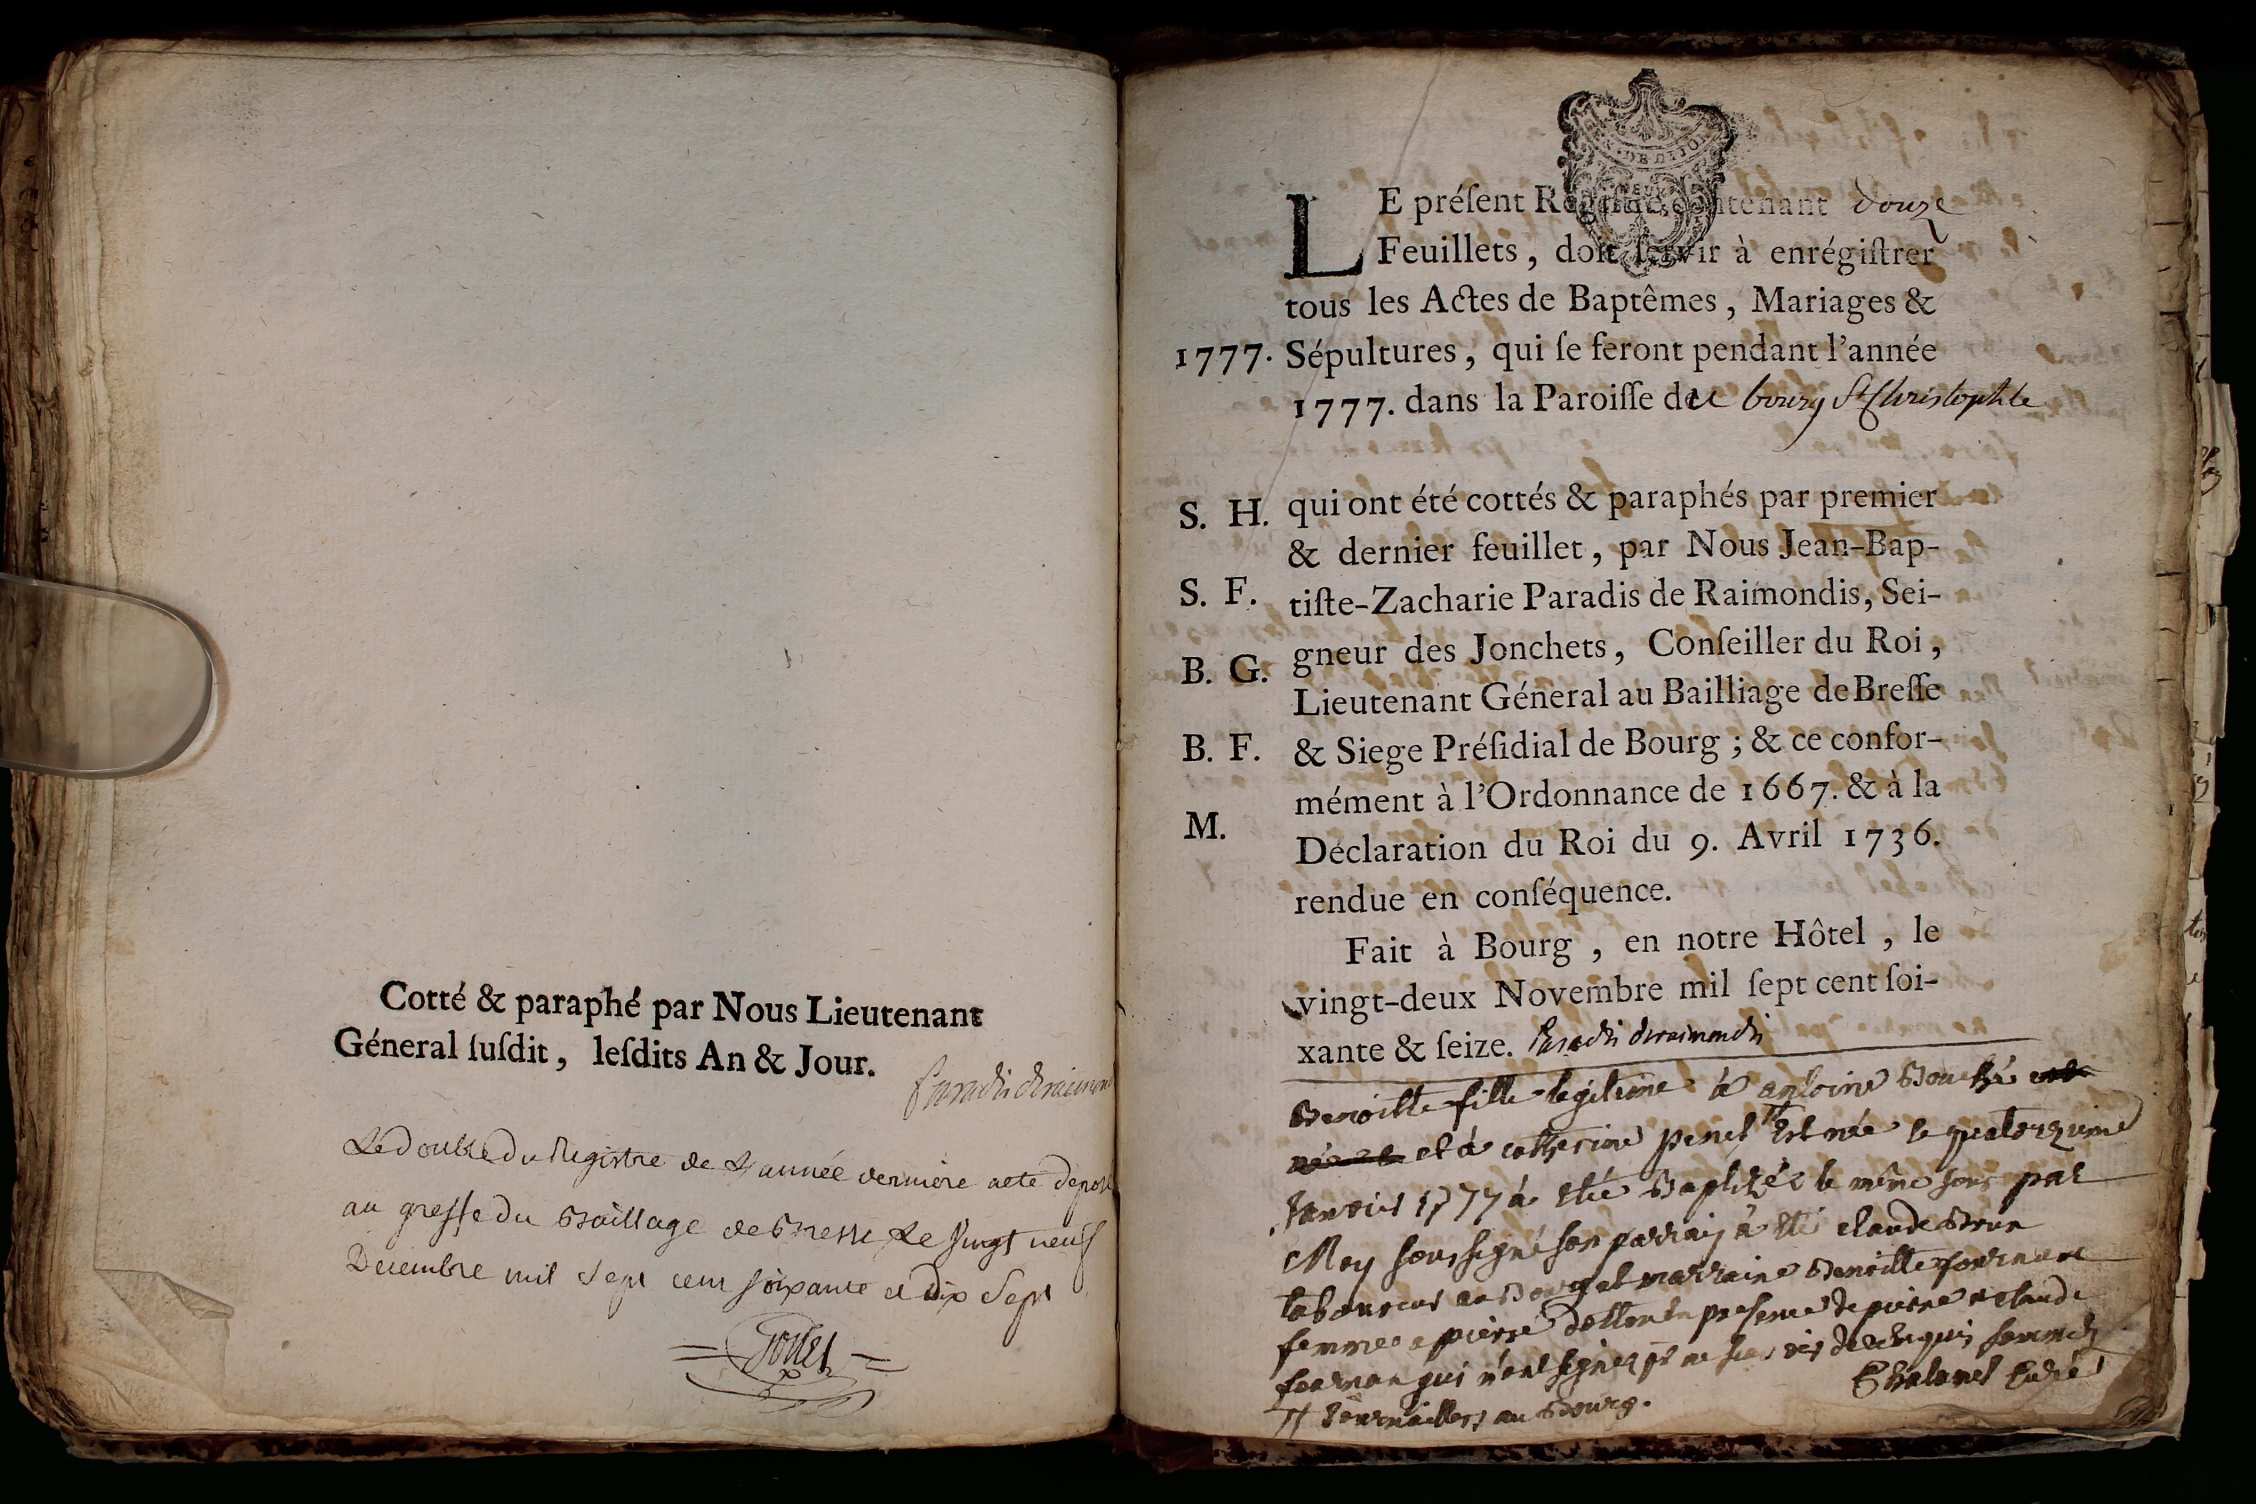 Cotté & paraphé par Nous Lieutenant
Géneral ſuſdit, leſdits An & Jour.
Paradis de raimond
Le double du Registre de L'année derniere a eté deposé
au greffe du Baillage de Bresse Le vingt neuf
Decembre mil Sept cent soixante et dix Sept
DE DIJON
LE préſent Regiſtre contenant douze
Feuillets, doit ſervir à enrégiſtrer
tous les Actes de Baptêmes, Mariages &
1777. Sépultures, qui ſe feront pendant l'année
1777. dans la Paroiſſe de u bourg St Christophle
S. H. qui ont été cottés & paraphés par premier
& dernier feuillet, par Nous Jean-Bap-
S. F. tiſte-Zacharie Paradis de Raimondis, Sei-
B. G. gneur des Jonchets, Conſeiller du Roi,
Lieutenant Géneral au Bailliage de Breſſe
B. F. & Siege Préſidial de Bourg ; & ce confor-
mément à l'Ordonnance de 1667. & à la
M. Déclaration du Roi du 9. Avril 1736.
rendue en conſéquence.
Fait à Bourg, en notre Hôtel, le
vingt-deux Novembre mil ſept cent ſoi-
xante & ſeize. Paradis de raimondis
Benoitte fille legitime à antoine
et à catherine penet est née le quatorzieme
Janvier 1777 à eté Baptizée le même jour par
Moy soussigné son parrain à eté claude Brun
laboureur au Bourg et marraine Benoitte
femme a pierre presence de pierre et claude
qui n'ont signer de
au Bourg. Curé